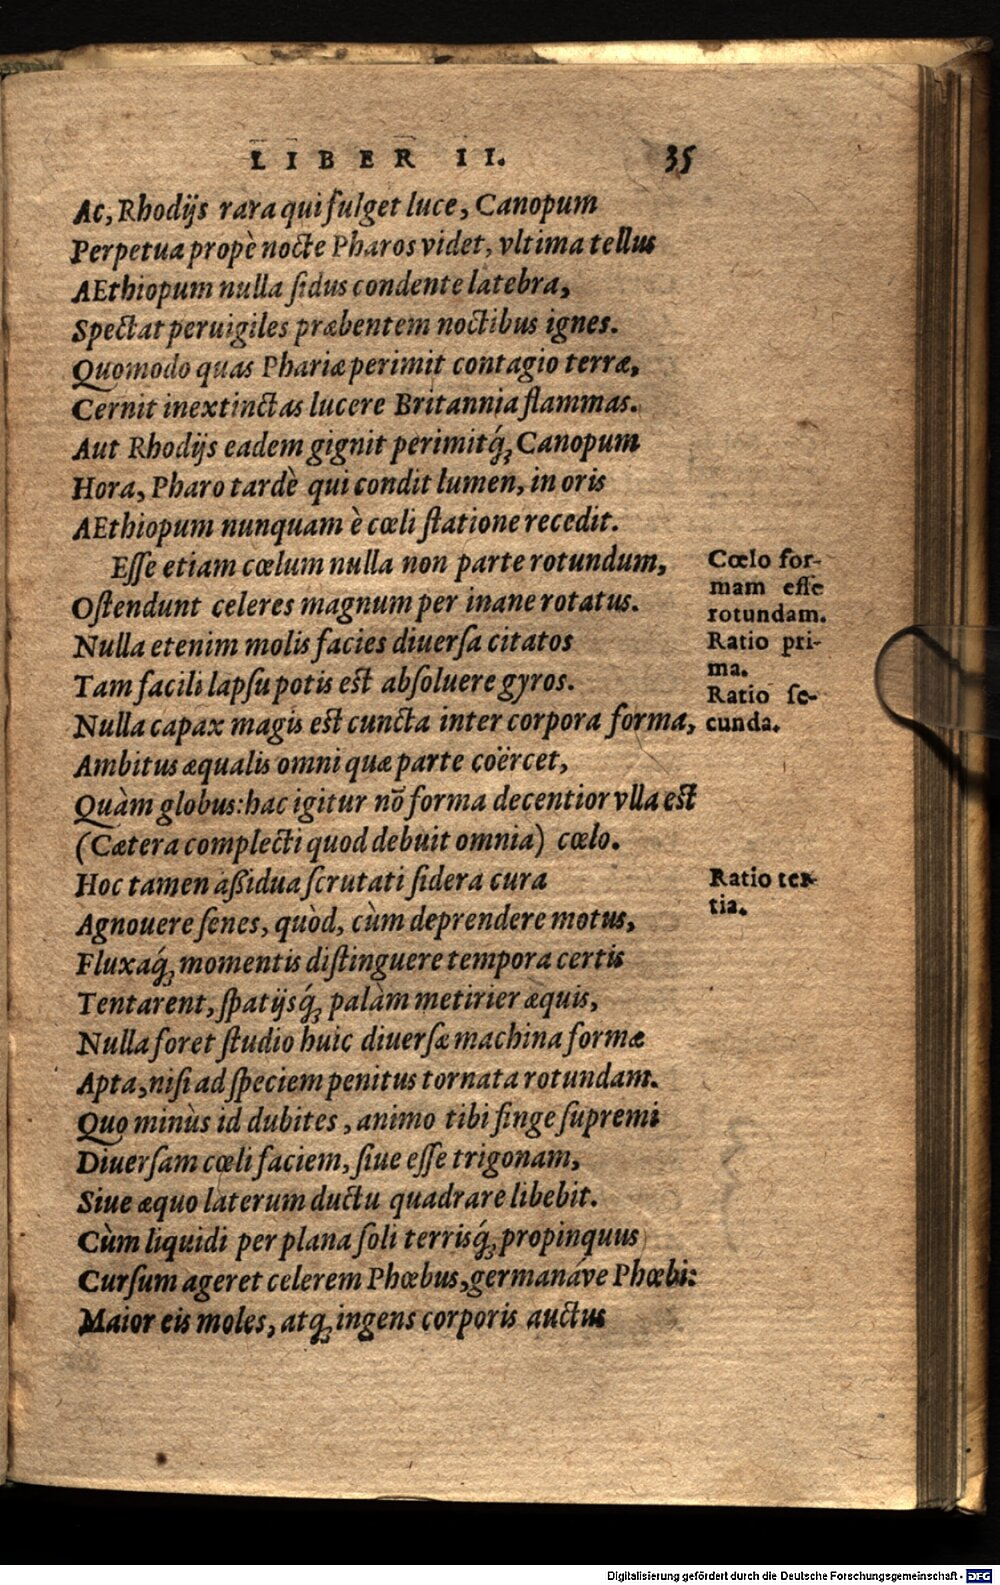 LIBER II. 35
Ac, Rhodijs rara qui fulget luce, Canopum
Perpetua propè nocte Pharos videt, vltima tellus
AEthiopum nulla ſidus condente latebra,
Spectat peruigiles præbentem noctibus ignes.
Quomodo quas Phariæ perimit contagio terræ,
Cernit inextinctas lucere Britannia flammas.
Aut Rhodijs eadem gignit perimitq́; Canopum
Hora, Pharo tardè qui condit lumen, in oris
AEthiopum nunquam è cœli ſtatione recedit.
Eſſe etiam cœlum nulla non parte rotundum,
Oſtendunt celeres magnum per inane rotatus.
Nulla etenim molis facies diuerſa citatos
Tam facili lapſu potis est abſoluere gyros.
Nulla capax magis est cuncta inter corpora forma,
Ambitus æqualis omni quæ parte coërcet,
Quàm globus: hac igitur nō forma decentior vlla est
(Cætera complecti quod debuit omnia) cœlo.
Hoc tamen aßidua ſcrutati ſidera cura
Agnouere ſenes, quòd, cùm deprendere motus,
Fluxaq́; momentis diſtinguere tempora certis
Tentarent, ſpatijsq́; palàm metirier æquis,
Nulla foret ſtudio huic diuerſæ machina formæ
Apta, niſi ad ſpeciem penitus tornata rotundam.
Quo minùs id dubites, animo tibi finge ſupremi
Diuerſam cœli faciem, ſiue eſſe trigonam,
Siue æquo laterum ductu quadrare libebit.
Cùm liquidi per plana ſoli terrisq́; propinquus
Curſum ageret celerem Phœbus, germanáve Phœbi:
Maior eis moles, atq; ingens corporis auctus
Cœlo for-
mam eſſe
rotundam.
Ratio pri-
ma.
Ratio ſe-
cunda.
Ratio ter-
tia.
Digitalisierung gefördert durch die Deutsche Forschungsgemeinschaft - DFG